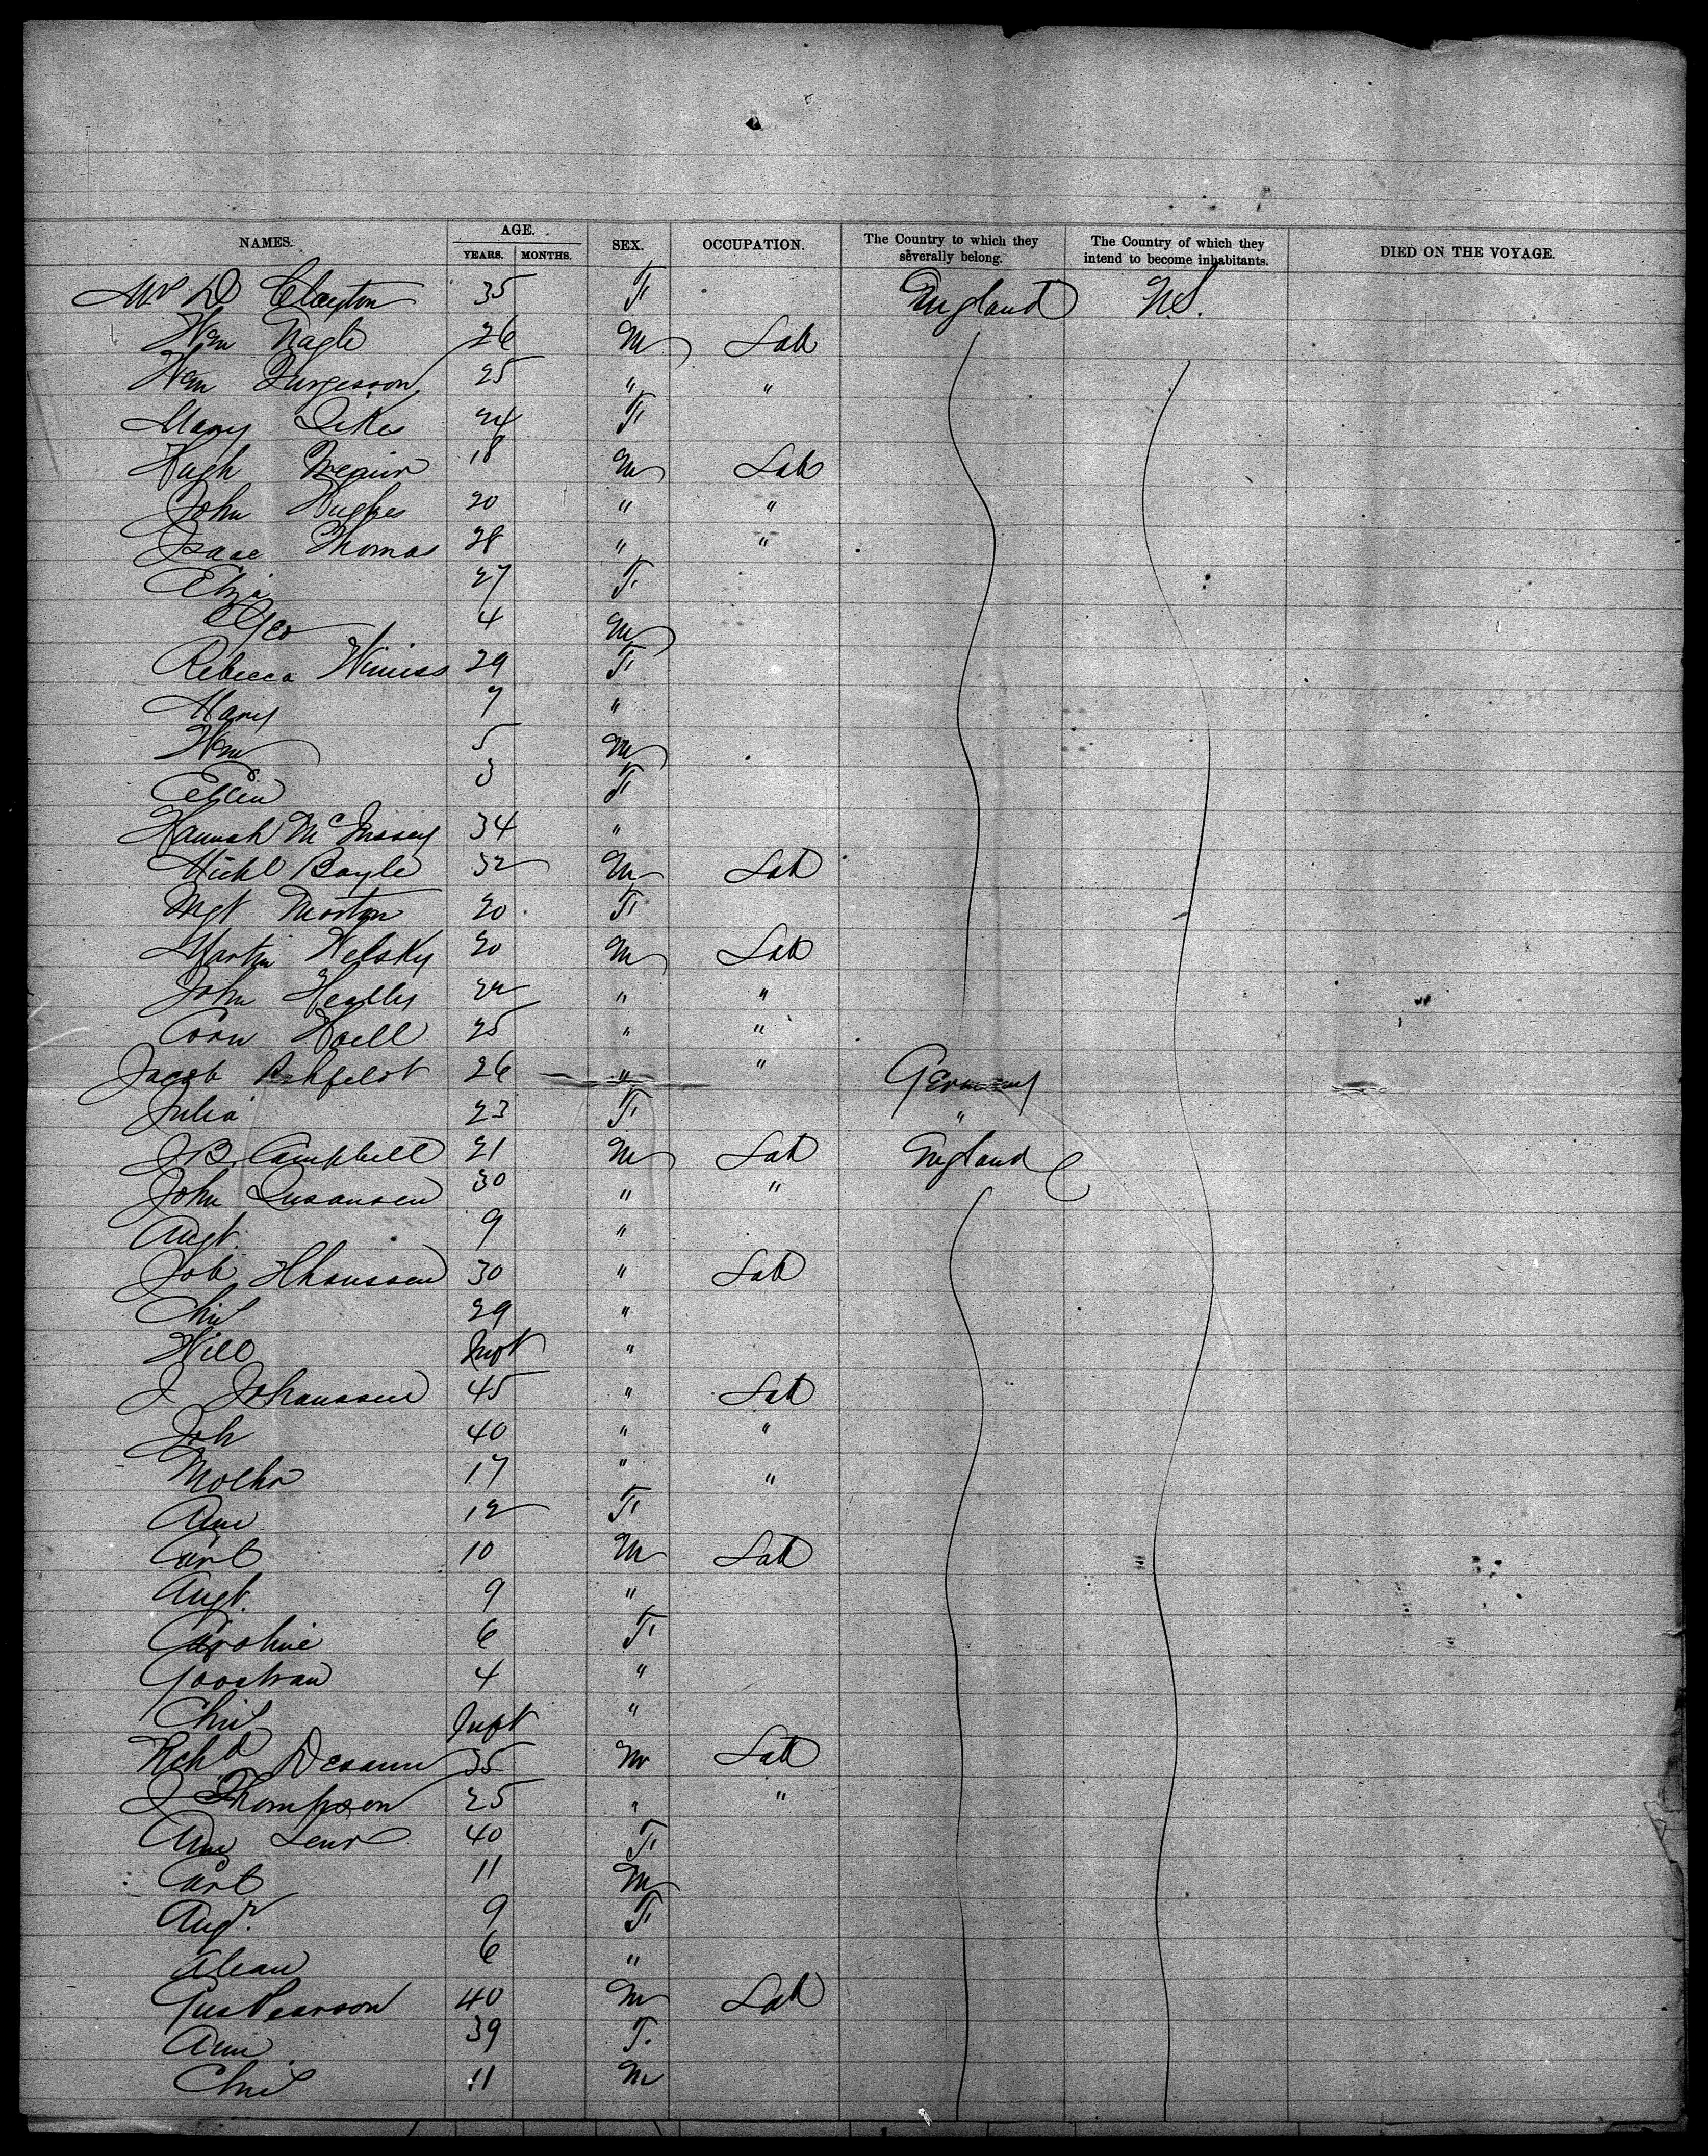 NAMES. AGE. SEX. OCCUPATION. The Country to which they severally belong. The Country of which they intend to become inhabitants. DIED ON THE VOYAGE.
YEARS. MONTHS.
Mr D Clayton 35 F England U.S.
Wm Nagle 26 M Lab
Wm 25 " "
Mary 24 F
Hugh 18 M Lab
John Hughes 20 " "
Isaac Thomas 28 " "
Eliza 27 F
Geo 4 M
Rebecca 29 F
Mary 7 "
Wm 5 M
Ellen 3 F
Hannah 34 "
Michl Boyle 32 M Lab
Mgt Morton 20 F
Martin Welsky 20 M Lab
John 22 " "
Corn 25 " "
Jacob Ashfeldt 26 " " Germany
Julia 23 F "
J B Campbell 21 M Lab England
John 30 " "
Augt. 9 "
Job 30 " Lab
Chri 29 "
Will Inft "
J Johanssen 45 " Lab
Joh 40 " "
17 " "
Ann 12 F
Carl 10 M Lab
Augt. 9 "
Caroline 6 F
4 "
Chri Inft "
Richd 35 M Lab
J Thompson 25 " "
Ann 40 F
Carl 11 M
Augt. 9 F
6 "
Gus Pearson 40 M Lab
Ann 39 F.
Chri 11 M